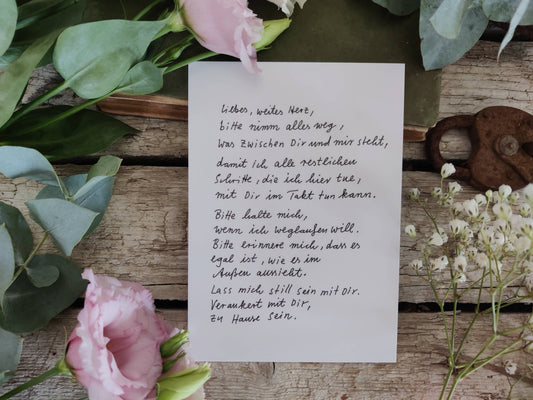 Liebes, weites Herz,
bitte nimm alles weg,
was zwischen Dir und mir steht,
damit ich alle restlichen
Schritte, die ich hier tue,
mit Dir im Takt tun kann.
Bitte halte mich,
wenn ich weglaufen will.
Bitte erinnere mich, dass es
egal ist, wie es im
Außen aussieht.
Lass mich still sein mit Dir.
Verankert mit Dir,
zu Hause sein.